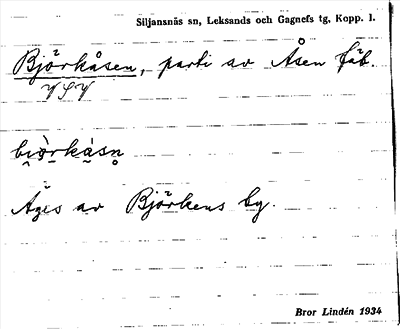 Siljansnäs sn, Leksands och Gagnefs tg, Kopp. l.
Björkåsen, parti av Åsen fäb.
Äges av Björkens by.
Bror Lindén 1934